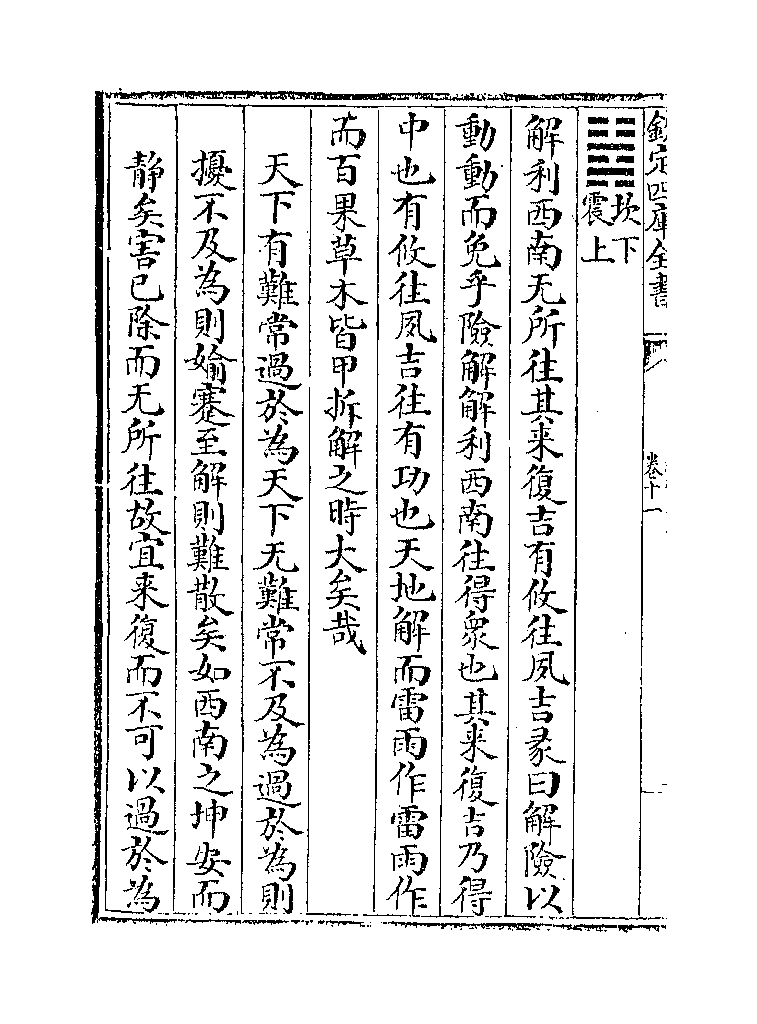 欽定四庫全書
卷十一
䷧坎下
震上
解利西南无所往其来復吉有攸往夙吉彖曰解險以
動動而免乎險解解利西南往得衆也其来復吉乃得
中也有攸往夙吉往有功也天地解而雷雨作雷雨作
而百果草木皆甲拆解之時大矣哉
天下有難常過於為天下无難常不及為過於為則
擾不及為則婾蹇至解則難散矣如西南之坤安而
静矣害已除而无所往故宜来復而不可以過於為